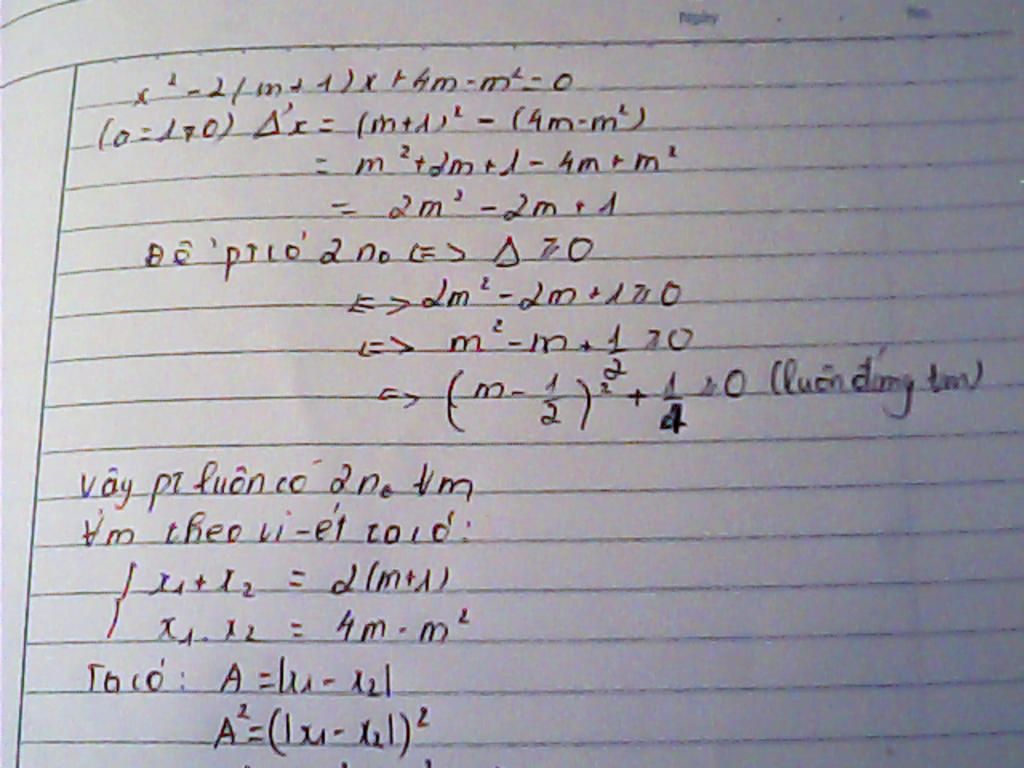 Ngày
x² - 2(m+1)x + 4m - m² = 0
(a=1≠0) Δ'x = (m+1)² - (4m-m²)
= m² + 2m + 1 - 4m + m²
= 2m² - 2m + 1
Để pt có 2 no <=> Δ ≥ 0
<=> 2m² - 2m + 1 ≥ 0
<=> m² - m + 1/2 ≥ 0
<=> (m - 1/2)² + 1/4 ≥ 0 (luôn đúng ∀m)
Vậy pt luôn có 2 no ∀m
∀m theo vi-ét ta có:
{ x₁ + x₂ = 2(m+1)
x₁.x₂ = 4m - m²
Ta có: A = |x₁ - x₂|
A² = (|x₁ - x₂|)²